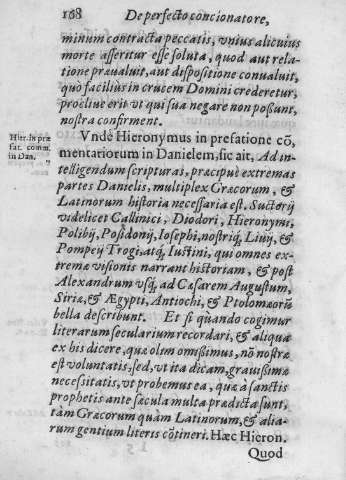 168 De perfecto concionatore,
minum contracta peccatis, vnius alicuius
morte asseritur esse soluta, quod aut rela
tione præualuit, aut dispositione conualuit,
quo facilius in crucem Domini crederetur,
procliue erit vt qui sua negare non possant,
nostra confirment.
Hier. in præ
fat. comm.
in Dan.
Vnde Hieronymus in prefatione cō,
mentariorum in Danielem, sic ait, Ad in-
„
telligendum scripturas, præcipuè extremas
partes Danielis, multiplex Græcorum, &
Latinorum historia necessaria est. Suctorij
videlicet Callinici, Diodori, Hieronymi,
Polibij, Posidonij, Iosephi, nostriq́; Liuij, &
Pompeij Trogi, atq́; Iustini, qui omnes ex-
tremæ visionis narrant historiam, & post
Alexandrum vsq́; ad Cæsarem Augustum,
Siriæ, & Ægypti, Antiochi, & Ptolomæorū
bella describunt. Et si quando cogimur
literarum secularium recordari, & aliqua
ex his dicere, quæ olim omisimus, nō nostræ
est voluntatis, sed, vt ita dicam, grauissimæ
necessitatis, vt probemus ea, quæ à sanctis
prophetis ante sæcula multa prædicta sunt,
tàm Græcorum quàm Latinorum, & alia-
rum gentium literis cōtineri. Hæc Hieron.
Quod